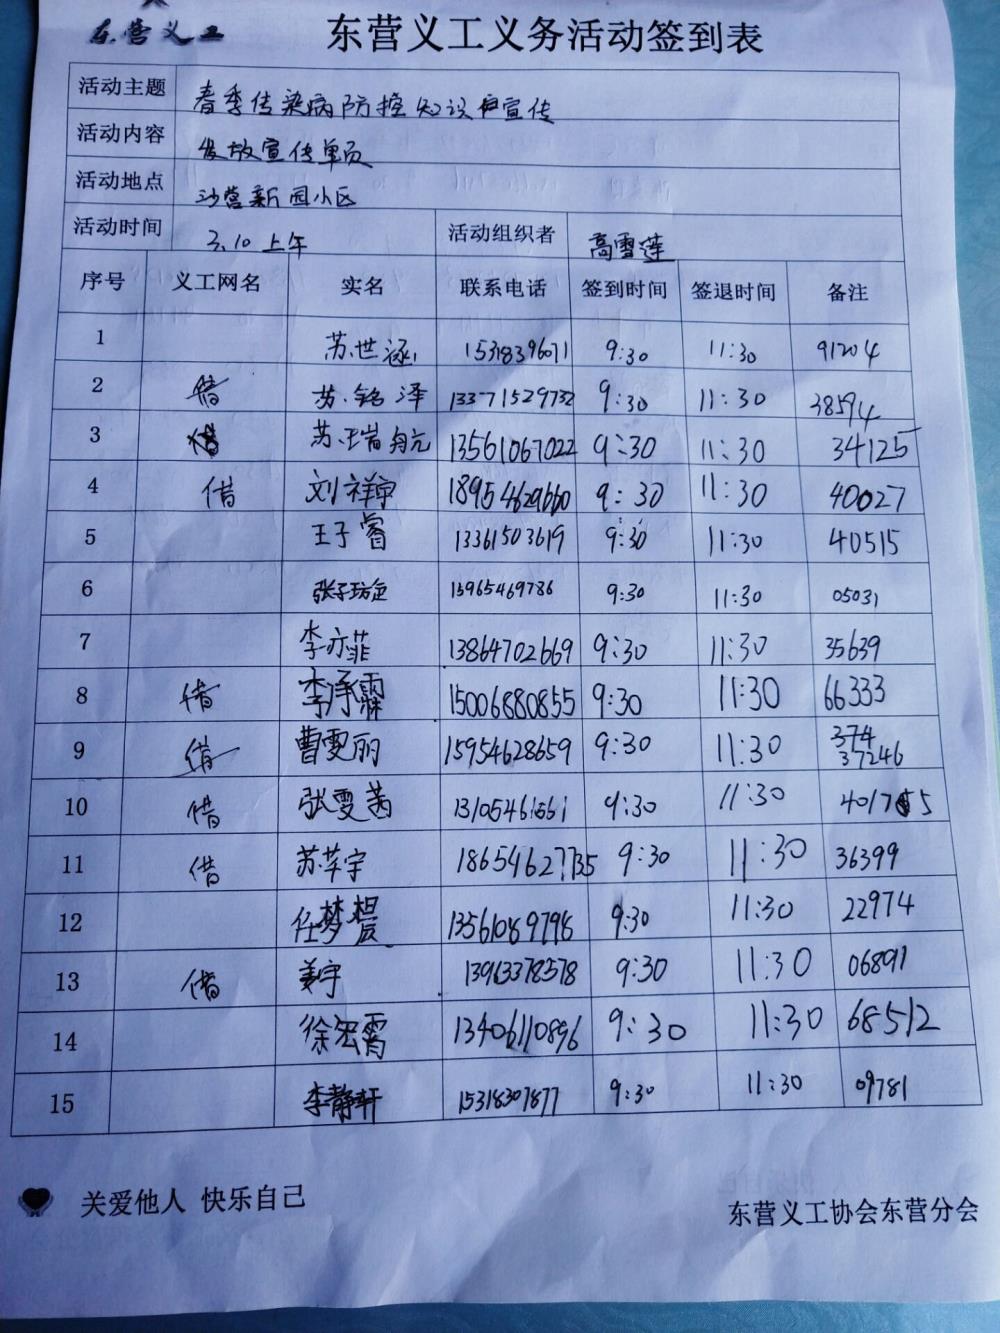 东营义工
东营义工义务活动签到表
活动主题 春季传染病防控知识宣传
活动内容 发放宣传单页
活动地点 沙营新园小区
活动时间 3.10上午 活动组织者 高雪莲
序号 义工网名 实名 联系电话 签到时间 签退时间 备注
1 苏世涵 15318396071 9:30 11:30 91204
2 借 苏铭泽 13371529732 9:30 11:30 38594
3 借 苏瑞航 13561067022 9:30 11:30 34125
4 借 刘祥宇 18954629660 9:30 11:30 40027
5 王子睿 13361503619 9:30 11:30 40515
6 张子 15965469786 9:30 11:30 05031
7 李亦菲 13864702669 9:30 11:30 35639
8 借 李承霖 15006880855 9:30 11:30 66333
9 借 曹雯丽 15954628659 9:30 11:30 374
37246
10 借 张雯茜 13105461561 9:30 11:30
11 借 苏苹宇 18654627735 9:30 11:30 36399
12 任梦 13561089798 9:30 11:30 22974
13 借 姜宇 13963378578 9:30 11:30 06891
14 徐宏霄 13406110896 9:30 11:30 68512
15 李静轩 15318307877 9:30 11:30 09781
关爱他人 快乐自己
东营义工协会东营分会